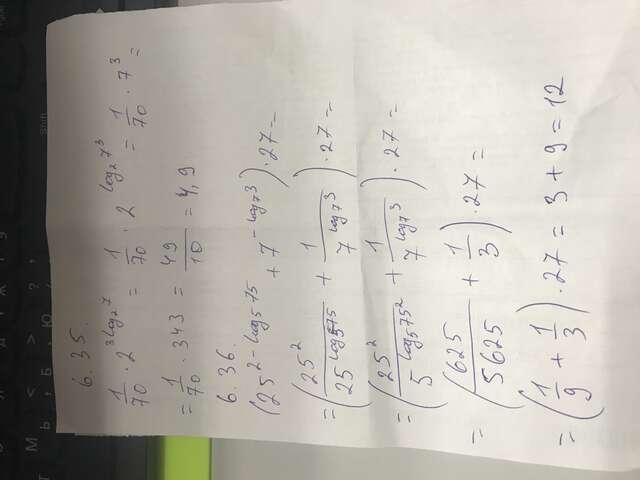 М < > ? ,
Ь Б Ю
Shift
6.35.
1/70 · 2^(3log₂7) = 1/70 · 2^(log₂7³) = 1/70 · 7³ =
= 1/70 · 343 = 49/10 = 4,9
6.36.
(25^(2-log₅75) + 7^(-log₇3)) · 27 =
= (25²/25^(log₅75) + 1/7^(log₇3)) · 27 =
= (25²/5^(log₅75²) + 1/7^(log₇3)) · 27 =
= (625/5625 + 1/3) · 27 =
= (1/9 + 1/3) · 27 = 3 + 9 = 12